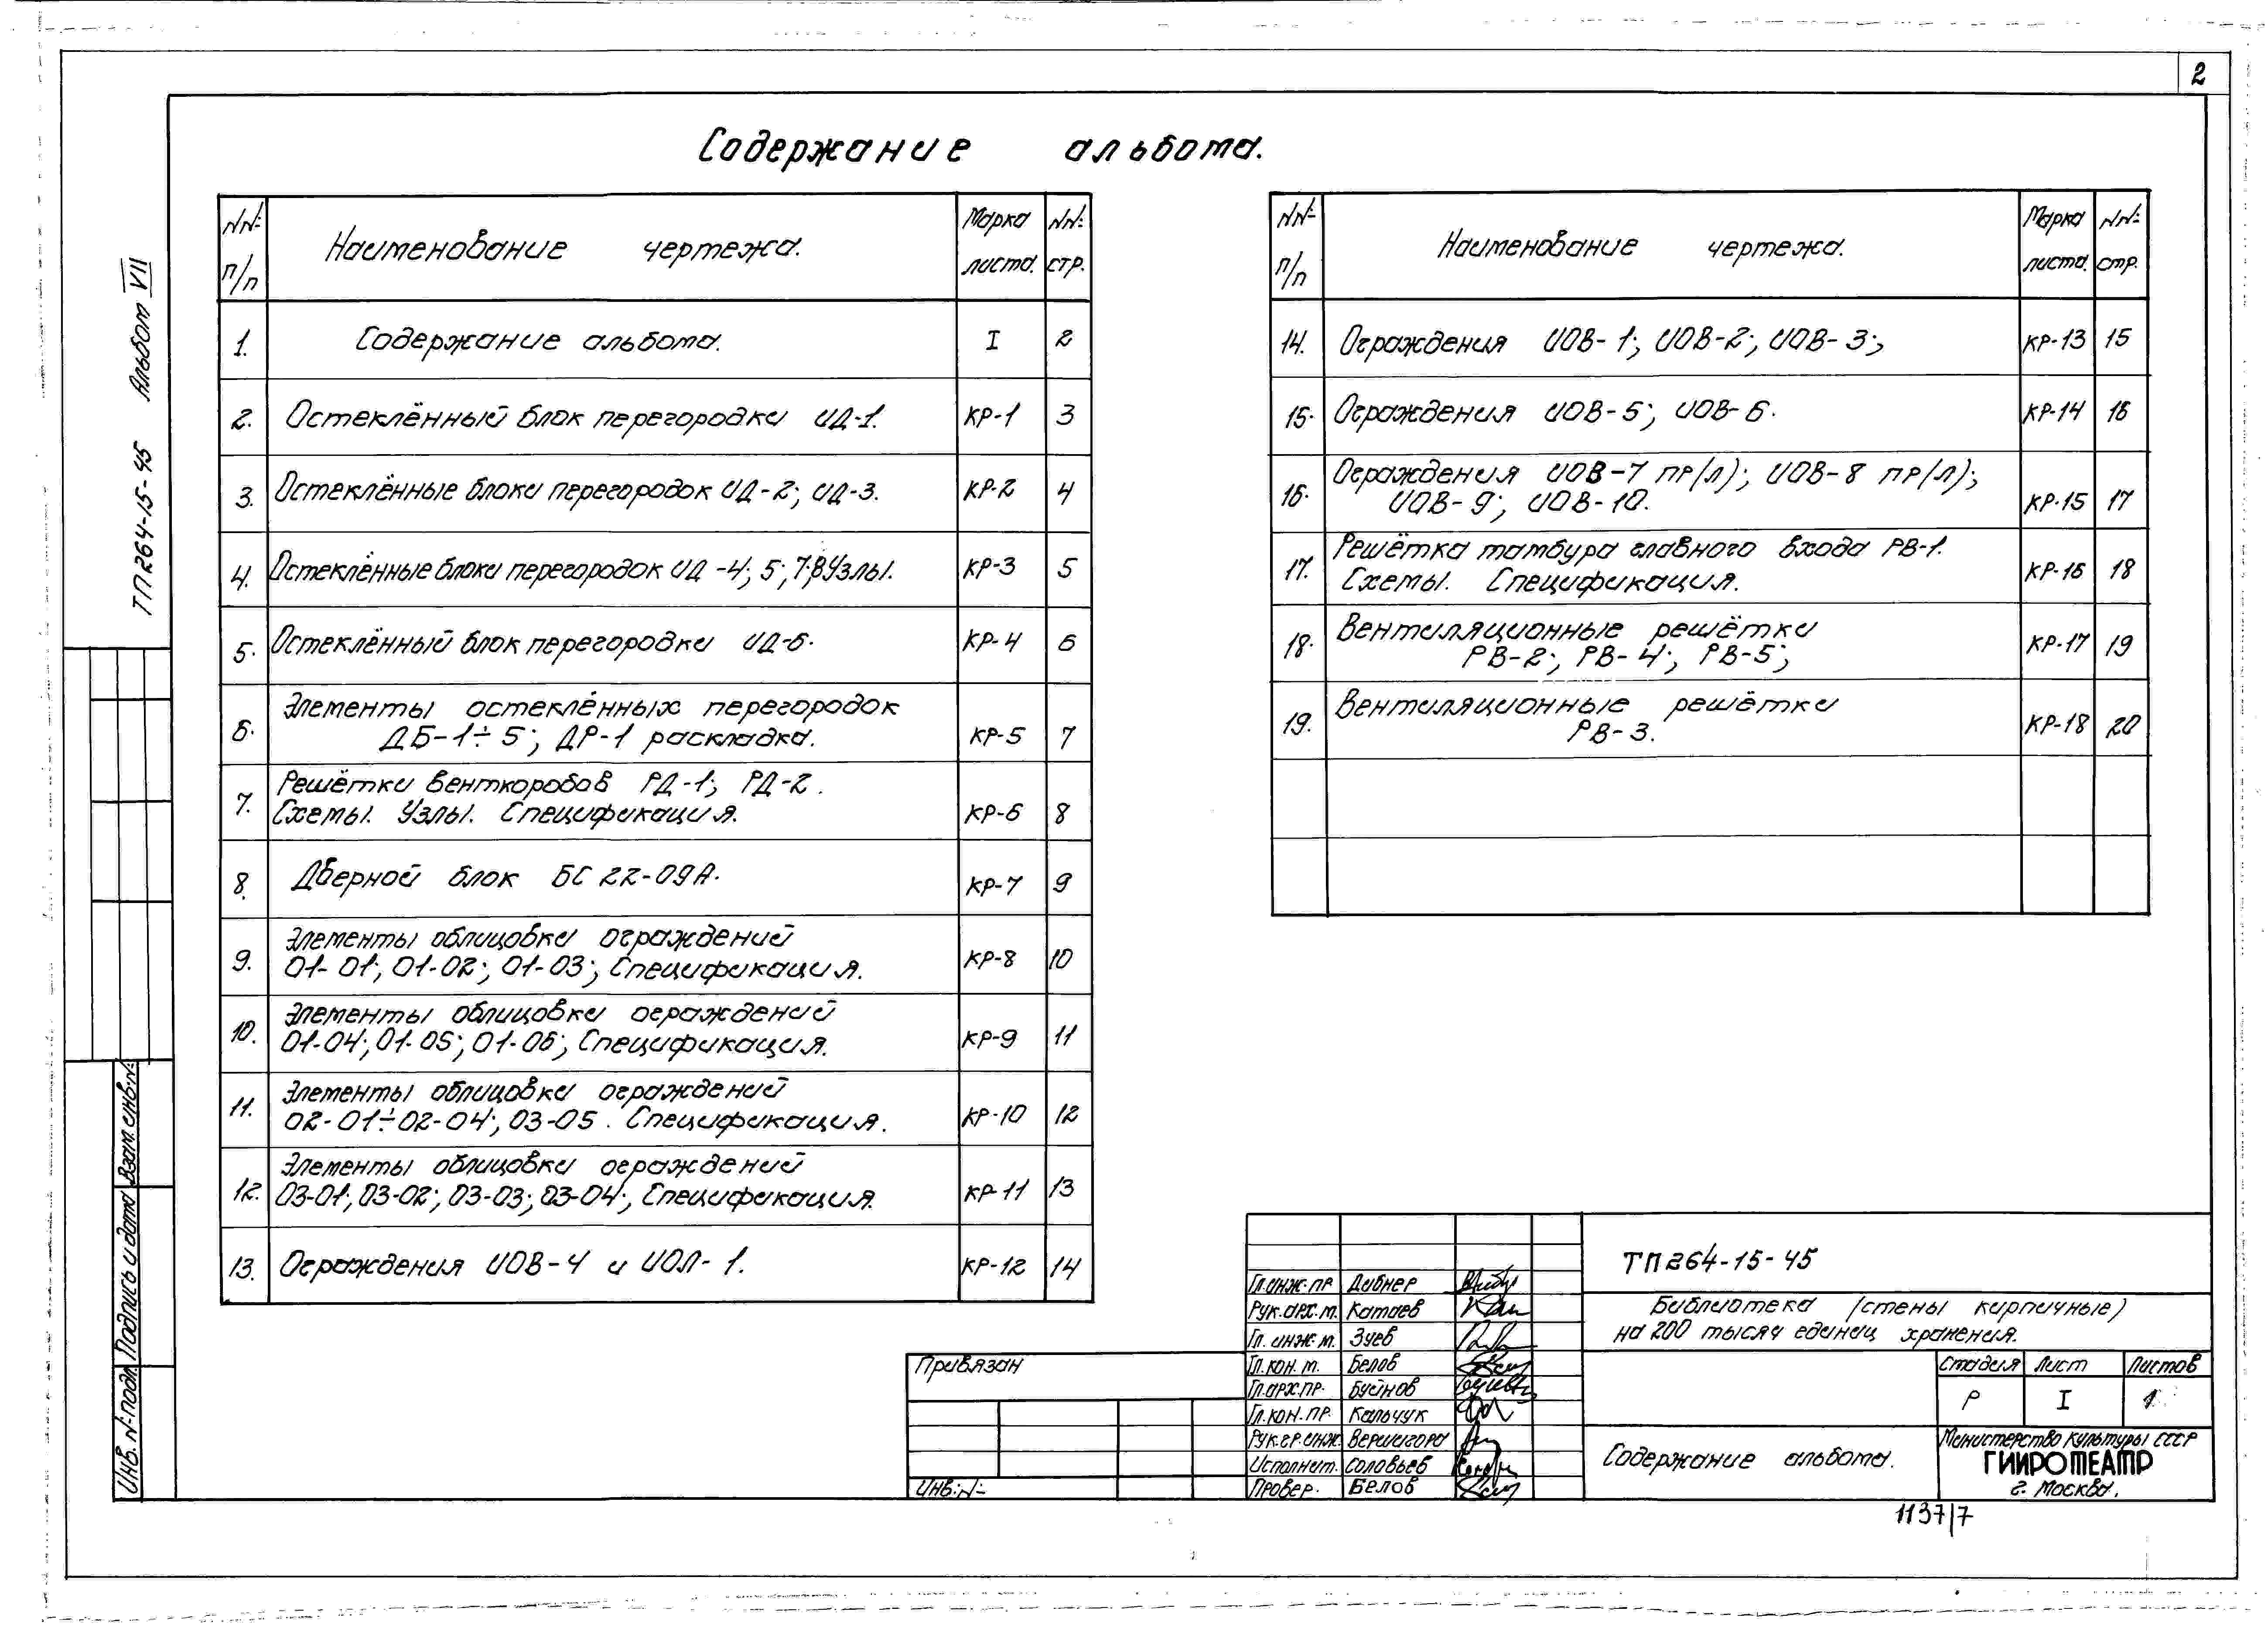 2
Содержание альбома.
ТП 264-15-45 Альбом VII
NN: п/п Наименование чертежа. Марка листа. NN: стр.
1. Содержание альбома. I 2
2. Остеклённый блок перегородки ИД-1. КР-1 3
3. Остеклённые блоки перегородок ИД-2; ИД-3. КР-2 4
4. Остеклённые блоки перегородок ИД-4; 5; 7; 8 Узлы. КР-3 5
5. Остеклённый блок перегородки ИД-6. КР-4 6
6. Элементы остеклённых перегородок
ДБ-1÷5; ДР-1 раскладка. КР-5 7
7. Решётки венткоробов РД-1; РД-2.
Схемы. Узлы. Спецификация. КР-6 8
8. Дверной блок БС 22-09А. КР-7 9
9. Элементы облицовки ограждений
01-01; 01-02; 01-03; Спецификация. КР-8 10
10. Элементы облицовки ограждений
01-04; 01-05; 01-06; Спецификация. КР-9 11
11. Элементы облицовки ограждений
02-01÷02-04; 03-05. Спецификация. КР-10 12
12. Элементы облицовки ограждений
03-01; 03-02; 03-03; 03-04; Спецификация. КР-11 13
13. Ограждения ИОВ-4 и ИОЛ-1. КР-12 14
NN: п/п Наименование чертежа. Марка листа. NN: стр.
14. Ограждения ИОВ-1; ИОВ-2; ИОВ-3; КР-13 15
15. Ограждения ИОВ-5; ИОВ-6. КР-14 16
16. Ограждения ИОВ-7 пр(л); ИОВ-8 пр(л);
ИОВ-9; ИОВ-10. КР-15 17
17. Решётка тамбура главного входа РВ-1.
Схемы. Спецификация. КР-16 18
18. Вентиляционные решётки
РВ-2; РВ-4; РВ-5; КР-17 19
19. Вентиляционные решётки
РВ-3. КР-18 20
Инв. N: подл. Подпись и дата Взам. инв. N:
Привязан
Инв. N:
Гл. инж. пр. Дибнер
Рук. арх. м. Катаев
Гл. инж. м. Зуев
Гл. кон. м. Белов
Гл. арх. пр. Буйнов
Гл. кон. пр. Кальчук
Рук. гр. инж. Вершигора
Исполнит. Соловьев
Провер. Белов
ТП 264-15-45
Библиотека (стены кирпичные)
на 200 тысяч единиц хранения.
Стадия Лист Листов
Р I 1
Содержание альбома.
Министерство культуры СССР
ГИПРОТЕАТР
г. Москва.
1137/7